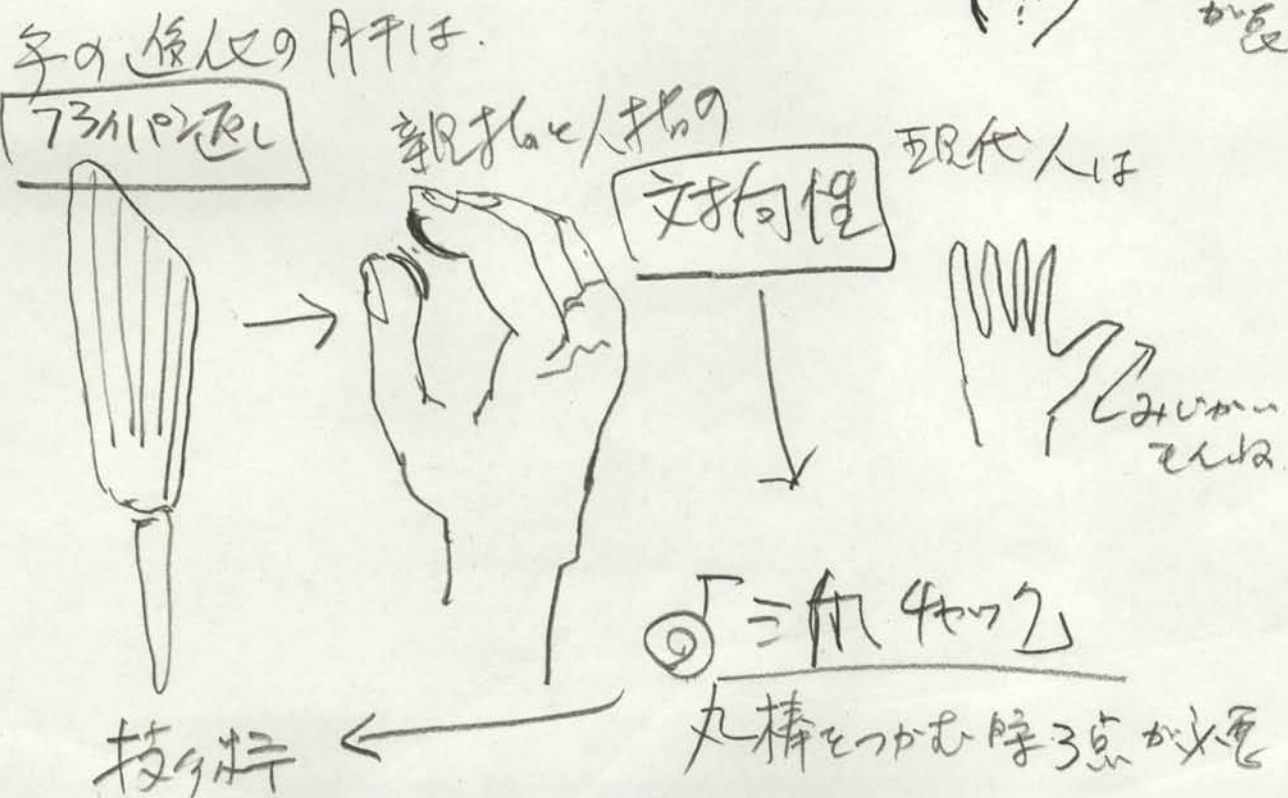 手の進化の肝は.
フライパン返し
親指と人指の
対向性
現代人は
みじかい
そんね
◎「三爪チャック」
丸棒をつかむ際3点が必要
技の粋